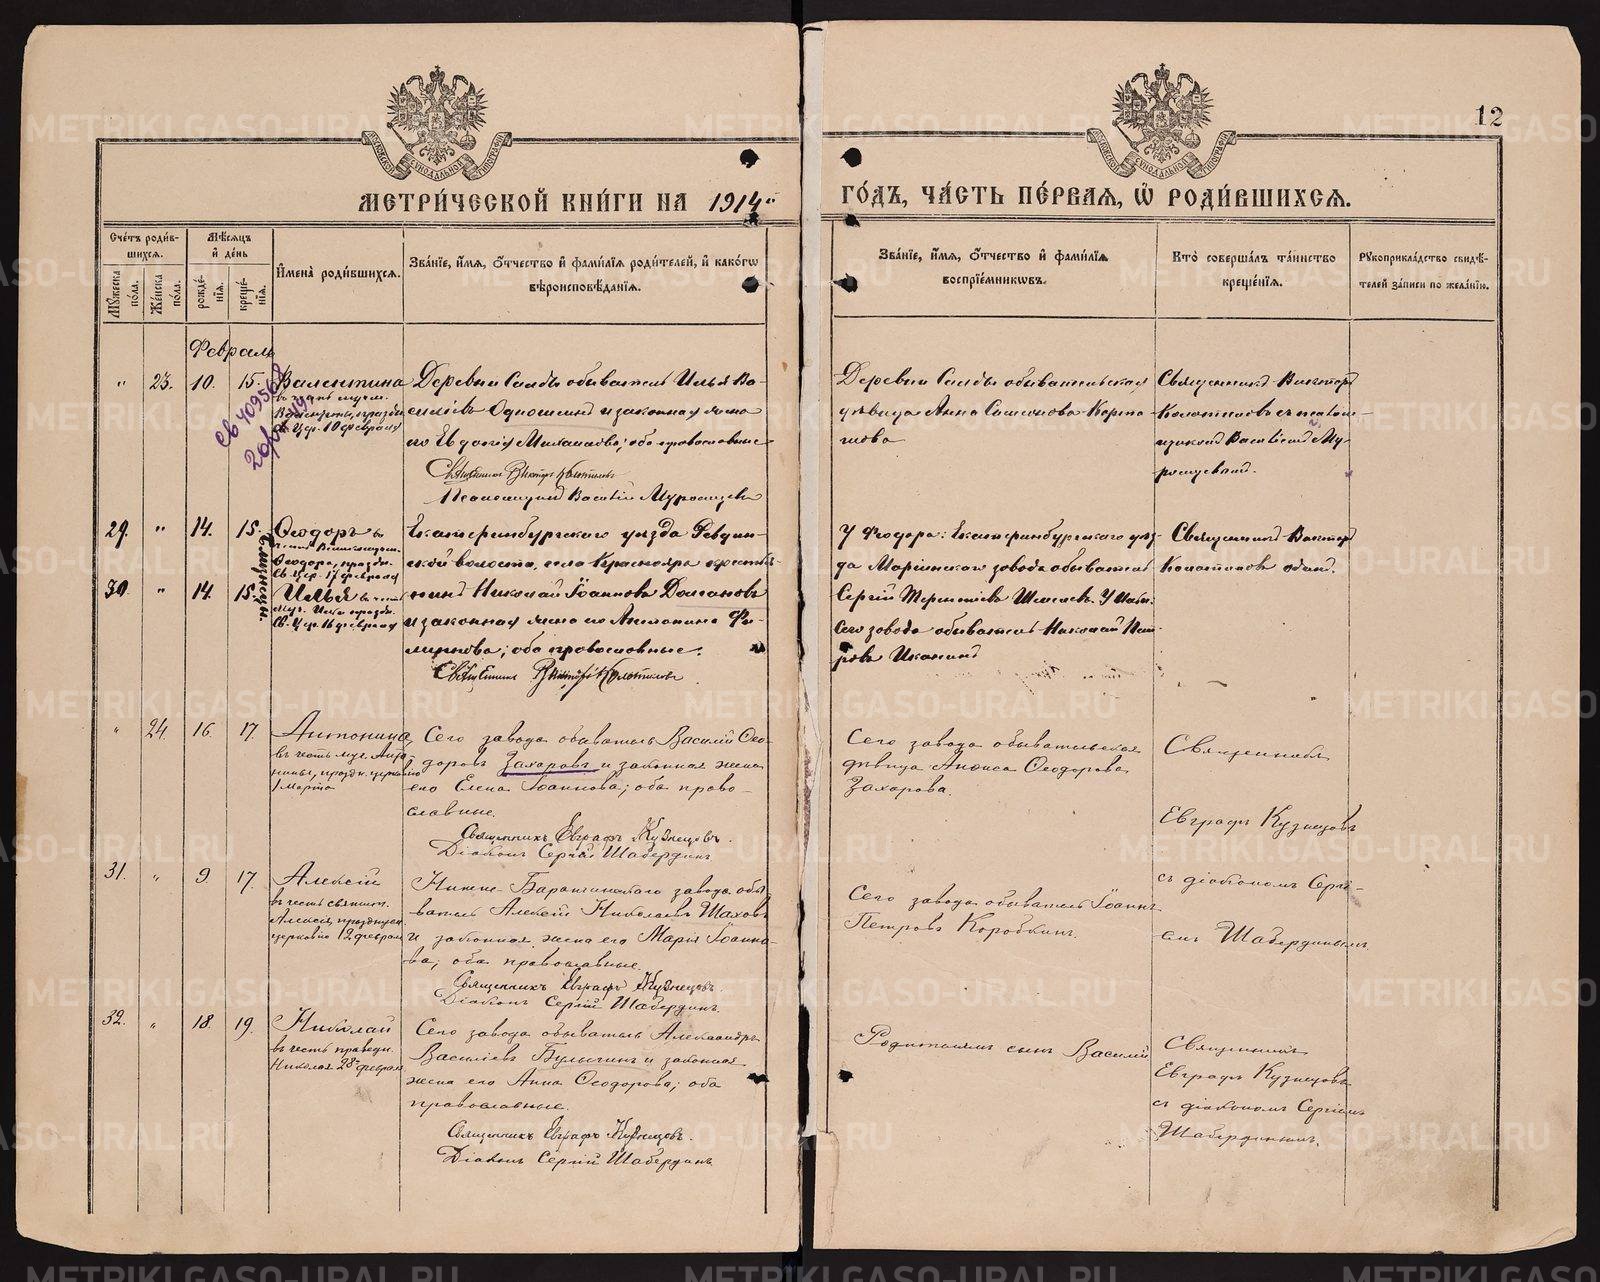 12
МЕТРИ́ЧЕСКОЙ КНИ́ГИ НА 1914й
ГО́ДЪ, ЧА́СТЬ ПЕ́РВАЯ, Ѡ҆ РОДИ́ВШИХСЯ.
Сче́тъ роди́в-
шихся.
Мѣ́сяцъ
и҆ де́нь
Мꙋ́жеска
по́ла.
Же́нска
по́ла.
рожде́-
нїя.
креще́-
нїя.
И҆мена̀ роди́вшихся.
Зва́нїе, и҆́мя, ѻ҆́тчество и҆ фами́лїя роди́телей, и҆ како́гѡ
вѣроисповѣ́данїя.
Зва́нїе, и҆́мя, ѻ҆́тчество и҆ фами́лїя
воспрїе́мникѡвъ.
Кто̀ соверша́лъ та́инство
креще́нїя.
Рꙋкоприкла́дство свидѣ́-
телей за́писи по жела́нїю.
Февраль
" 23. 10. 15. Валентина
въ честь муч.
Валентины, праздн.
св. Цер. 10 февраля
Деревни Салды обыватель Илья Ва-
силіевъ Одношеинъ и законная жена
его Евдокія Михаилова; оба православные
Священникъ Викторъ Колотиловъ
Псаломщикъ Василій
Деревни Салды обывательская
дѣвица Анна
Священникъ Викторъ
Колотиловъ съ псалом-
щикомъ Василіемъ
29. " 14. 15. Ѳеодоръ въ
честь Великомуч.
Ѳеодора, праздн.
Св. Цер. 17 февраля
30. " 14. 15. Илья въ честь
муч. Иліи праздн.
Св. Цер. 16 февраля
Близнецы.
Екатеринбургскаго уѣзда Ревдин-
ской волости, села Краснояра крестья-
нинъ Николай Іоанновъ Долгановъ
и законная жена его Антонина
; оба православные.
Священникъ Викторъ Колотиловъ
У Ѳеодора: Екатеринбургскаго уѣз-
да Маріинскаго завода обыватель
Сергій Терентіевъ У Иліи:
Сего завода обыватель Николай Пет-
ровъ Иканинъ
Священникъ Викторъ
Колотиловъ одинъ.
" 24. 16. 17. Антонина,
въ честь муч. Анто-
нины, праздн. церковію
1 Марта
Сего завода обыватель Василій Ѳео-
доровъ Захаровъ и законная жена
его Елена Іоаннова; оба право-
славные.
Священникъ Евграфъ Кузнецовъ.
Діаконъ Сергій Шабердинъ
Сего завода обывательская
дѣвица Анѳиса Ѳеодорова
Захарова.
Священникъ
Евграфъ Кузнецовъ
съ діакономъ Сергі-
емъ Шабердинымъ.
31. " 9. 17. Алексій
въ честь святит.
Алексія, празднуем.
церковію 12 феврал
Нижне-Баранчинскаго завода обы-
ватель Алексій Николаевъ Шаховъ
и законная жена его Марія Іоанно-
ва; оба православные.
Священникъ Евграфъ Кузнецовъ.
Діаконъ Сергій Шабердинъ.
Сего завода обыватель Іоаннъ
Петровъ Коробкинъ.
32. " 18. 19. Николай
въ честь праведн.
Николая 28 феврал
Сего завода обыватель Александръ
Василіевъ Булыгинъ и законная
жена его Анна Ѳеодорова; оба
православные.
Священникъ Евграфъ Кузнецовъ.
Діаконъ Сергій Шабердинъ
Родителямъ сынъ Василій
Священникъ
Евграфъ Кузнецовъ
съ діакономъ Сергіемъ
Шабердинымъ.
METRIKI.GASO-URAL.RU